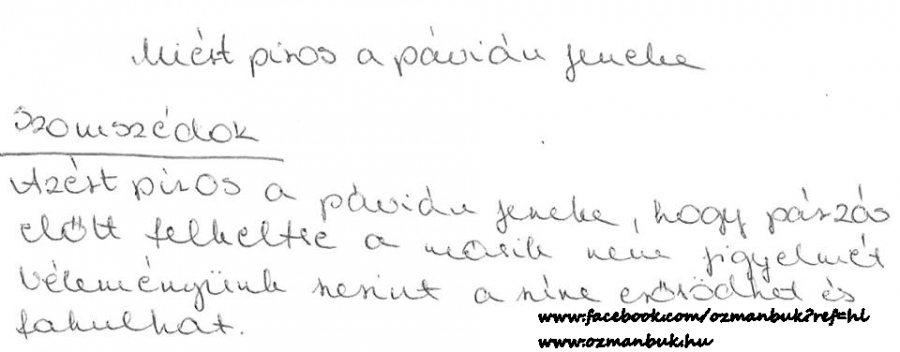 Miért piros a pávián feneke
Szomszédok
Azért piros a pávián feneke, hogy párzás
előtt felkeltse a másik nem figyelmét
Véleményünk szerint a színe erősödhet és
fakulhat.
www.facebook.com/ozmanbuk?ref=hl
www.ozmanbuk.hu